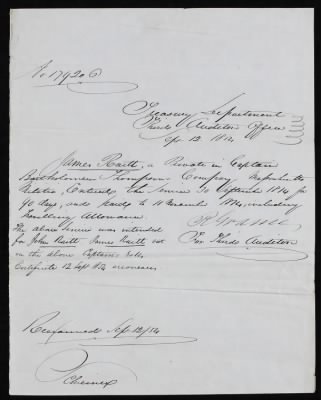 No 17920 6
Treasury Department
Third Auditors Office
Sep 12
James Raitt, a Private in Captain
Bartholomew Thompsons Company
Militia, Entered the service 10 1814 for
90 days, and paid to 10 March including
travelling Allowance.
The above service was intended
for John Raitt James Raitt not
on the above Captains rolls
Certificate 12 Sept erroneous
For Third Auditor
Reexamined Sep 12/